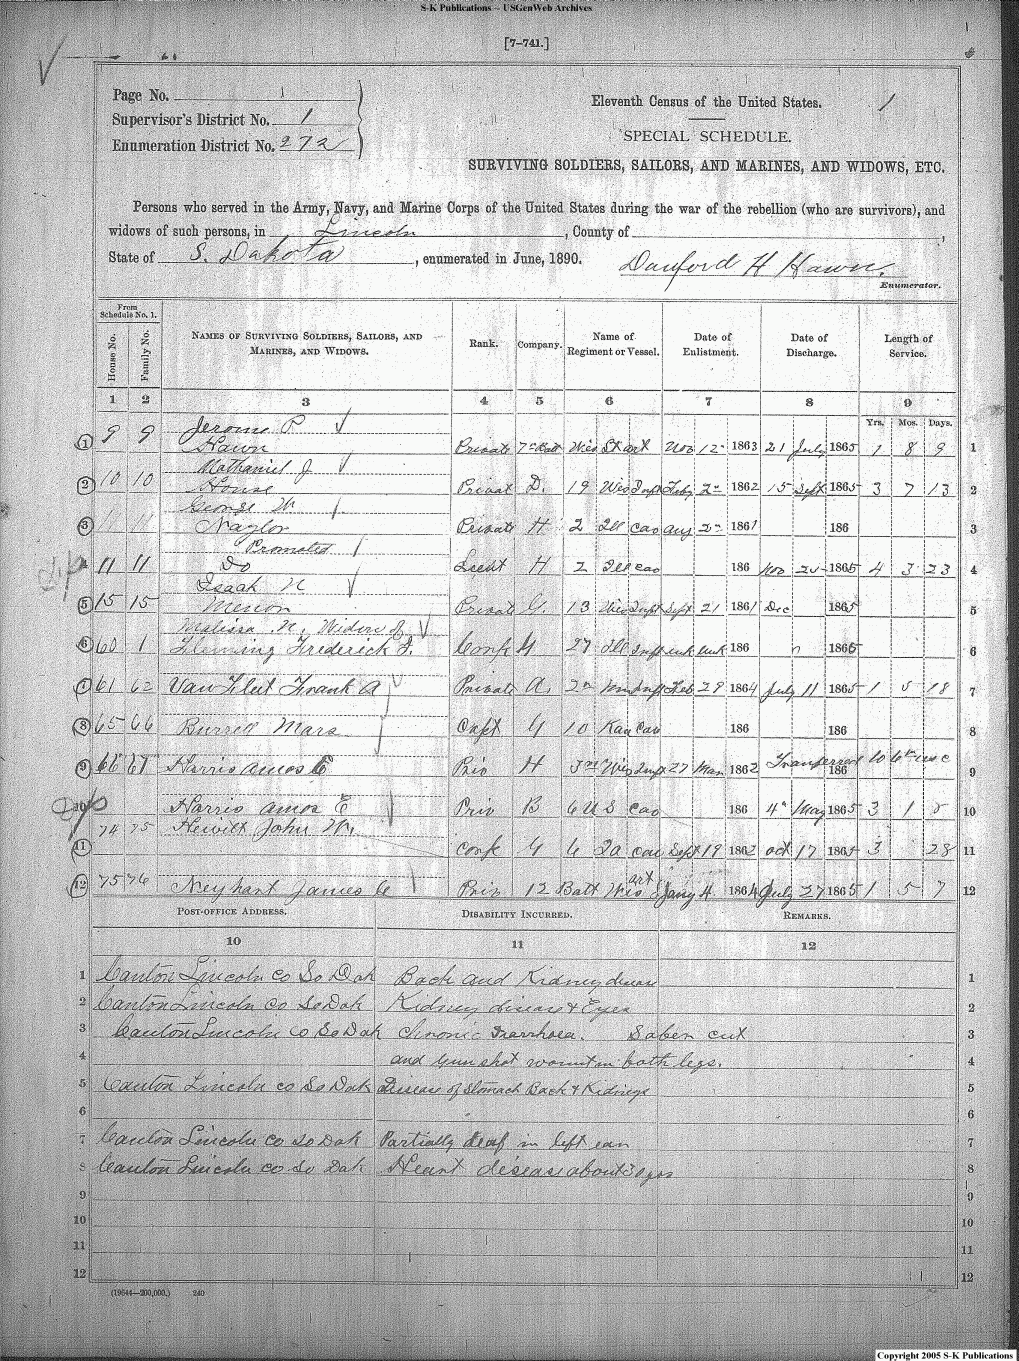 S-K Publications – USGenWeb Archives
[7–741.]
Page No. 1
Supervisor's District No. 1
Enumeration District No. 272
Eleventh Census of the United States. 1
SPECIAL SCHEDULE.
SURVIVING SOLDIERS, SAILORS, AND MARINES, AND WIDOWS, ETC.
Persons who served in the Army, Navy, and Marine Corps of the United States during the war of the rebellion (who are survivors), and
widows of such persons, in Lincoln, County of
State of S. Dakota, enumerated in June, 1890. Danford H Hawn.
Enumerator.
From Schedule No. 1.
House No. Family No. NAMES OF SURVIVING SOLDIERS, SAILORS, AND MARINES, AND WIDOWS. Rank. Company. Name of Regiment or Vessel. Date of Enlistment. Date of Discharge. Length of Service.
1 2 3 4 5 6 7 8 9
Yrs. Mos. Days.
Jerome P
1 9 9 Hawn Private 7th Batt Wis St art Nov 12 1863 21 July 1865 1 8 9 1
Nathaniel J
2 10 10 House Privat D. 19 Wis Inft Feby 2 1862 15 Sept 1865 3 7 13 2
George W
3 11 11 Naylor Private H 2 Ill cav aug 2 1861 186 3
Promoted
4 11 11 Do Lieut H 2 Ill cav 186 Nov 1865 4 3 23 4
Isaah N
5 15 15 Menon Private G. 13 Wis Inft Sept 21 1861 Dec 1865 5
Malissa N. Widow of
6 60 1 Fleming Frederick F. Corp 27 Ill Inft unk unk 186 1865 6
7 61 62 Van Fleet Frank A Private A. Inft Feb 29 1864 July 11 1865 1 5 18 7
8 65 66 Burrell Mars Capt G 10 Kan Cav 186 186 8
9 66 67 Harris amos E Priv H 3rd Wis Inft 27 Mar 1862 Tranferred to 6th usc 186 9
10 Harris amos E Priv B 6 U S cav 186 4th May 1865 3 1 5 10
74 75 Hewitt John W.
11 Corp G 6 Ia cav Sept 19 1862 oct 17 1865 3 28 11
12 75 76 Neyhart James C Priv 12 Batt Wis art Jany 4 1864 July 27 1865 1 5 7 12
POST-OFFICE ADDRESS. DISABILITY INCURRED. REMARKS.
10 11 12
1 Canton Lincoln co So Dak Back and Kidney diseas 1
2 Canton Lincoln Co So Dak Kidney disease & Eyes 2
3 Canton Lincoln Co So Dak Chronic Diarrhoea. Saber cut 3
4 and Gun shot in both legs. 4
5 Canton Lincoln co So Dak Disease of Stomach Back & Kidneys 5
6 6
7 Canton Lincoln co So Dak Partially deaf in left ear 7
8 Canton Lincoln co So Dak Heart disease about 3 yrs 8
9 9
10 10
11 11
12 12
(19644—200,000.) 240
Copyright 2005 S-K Publications